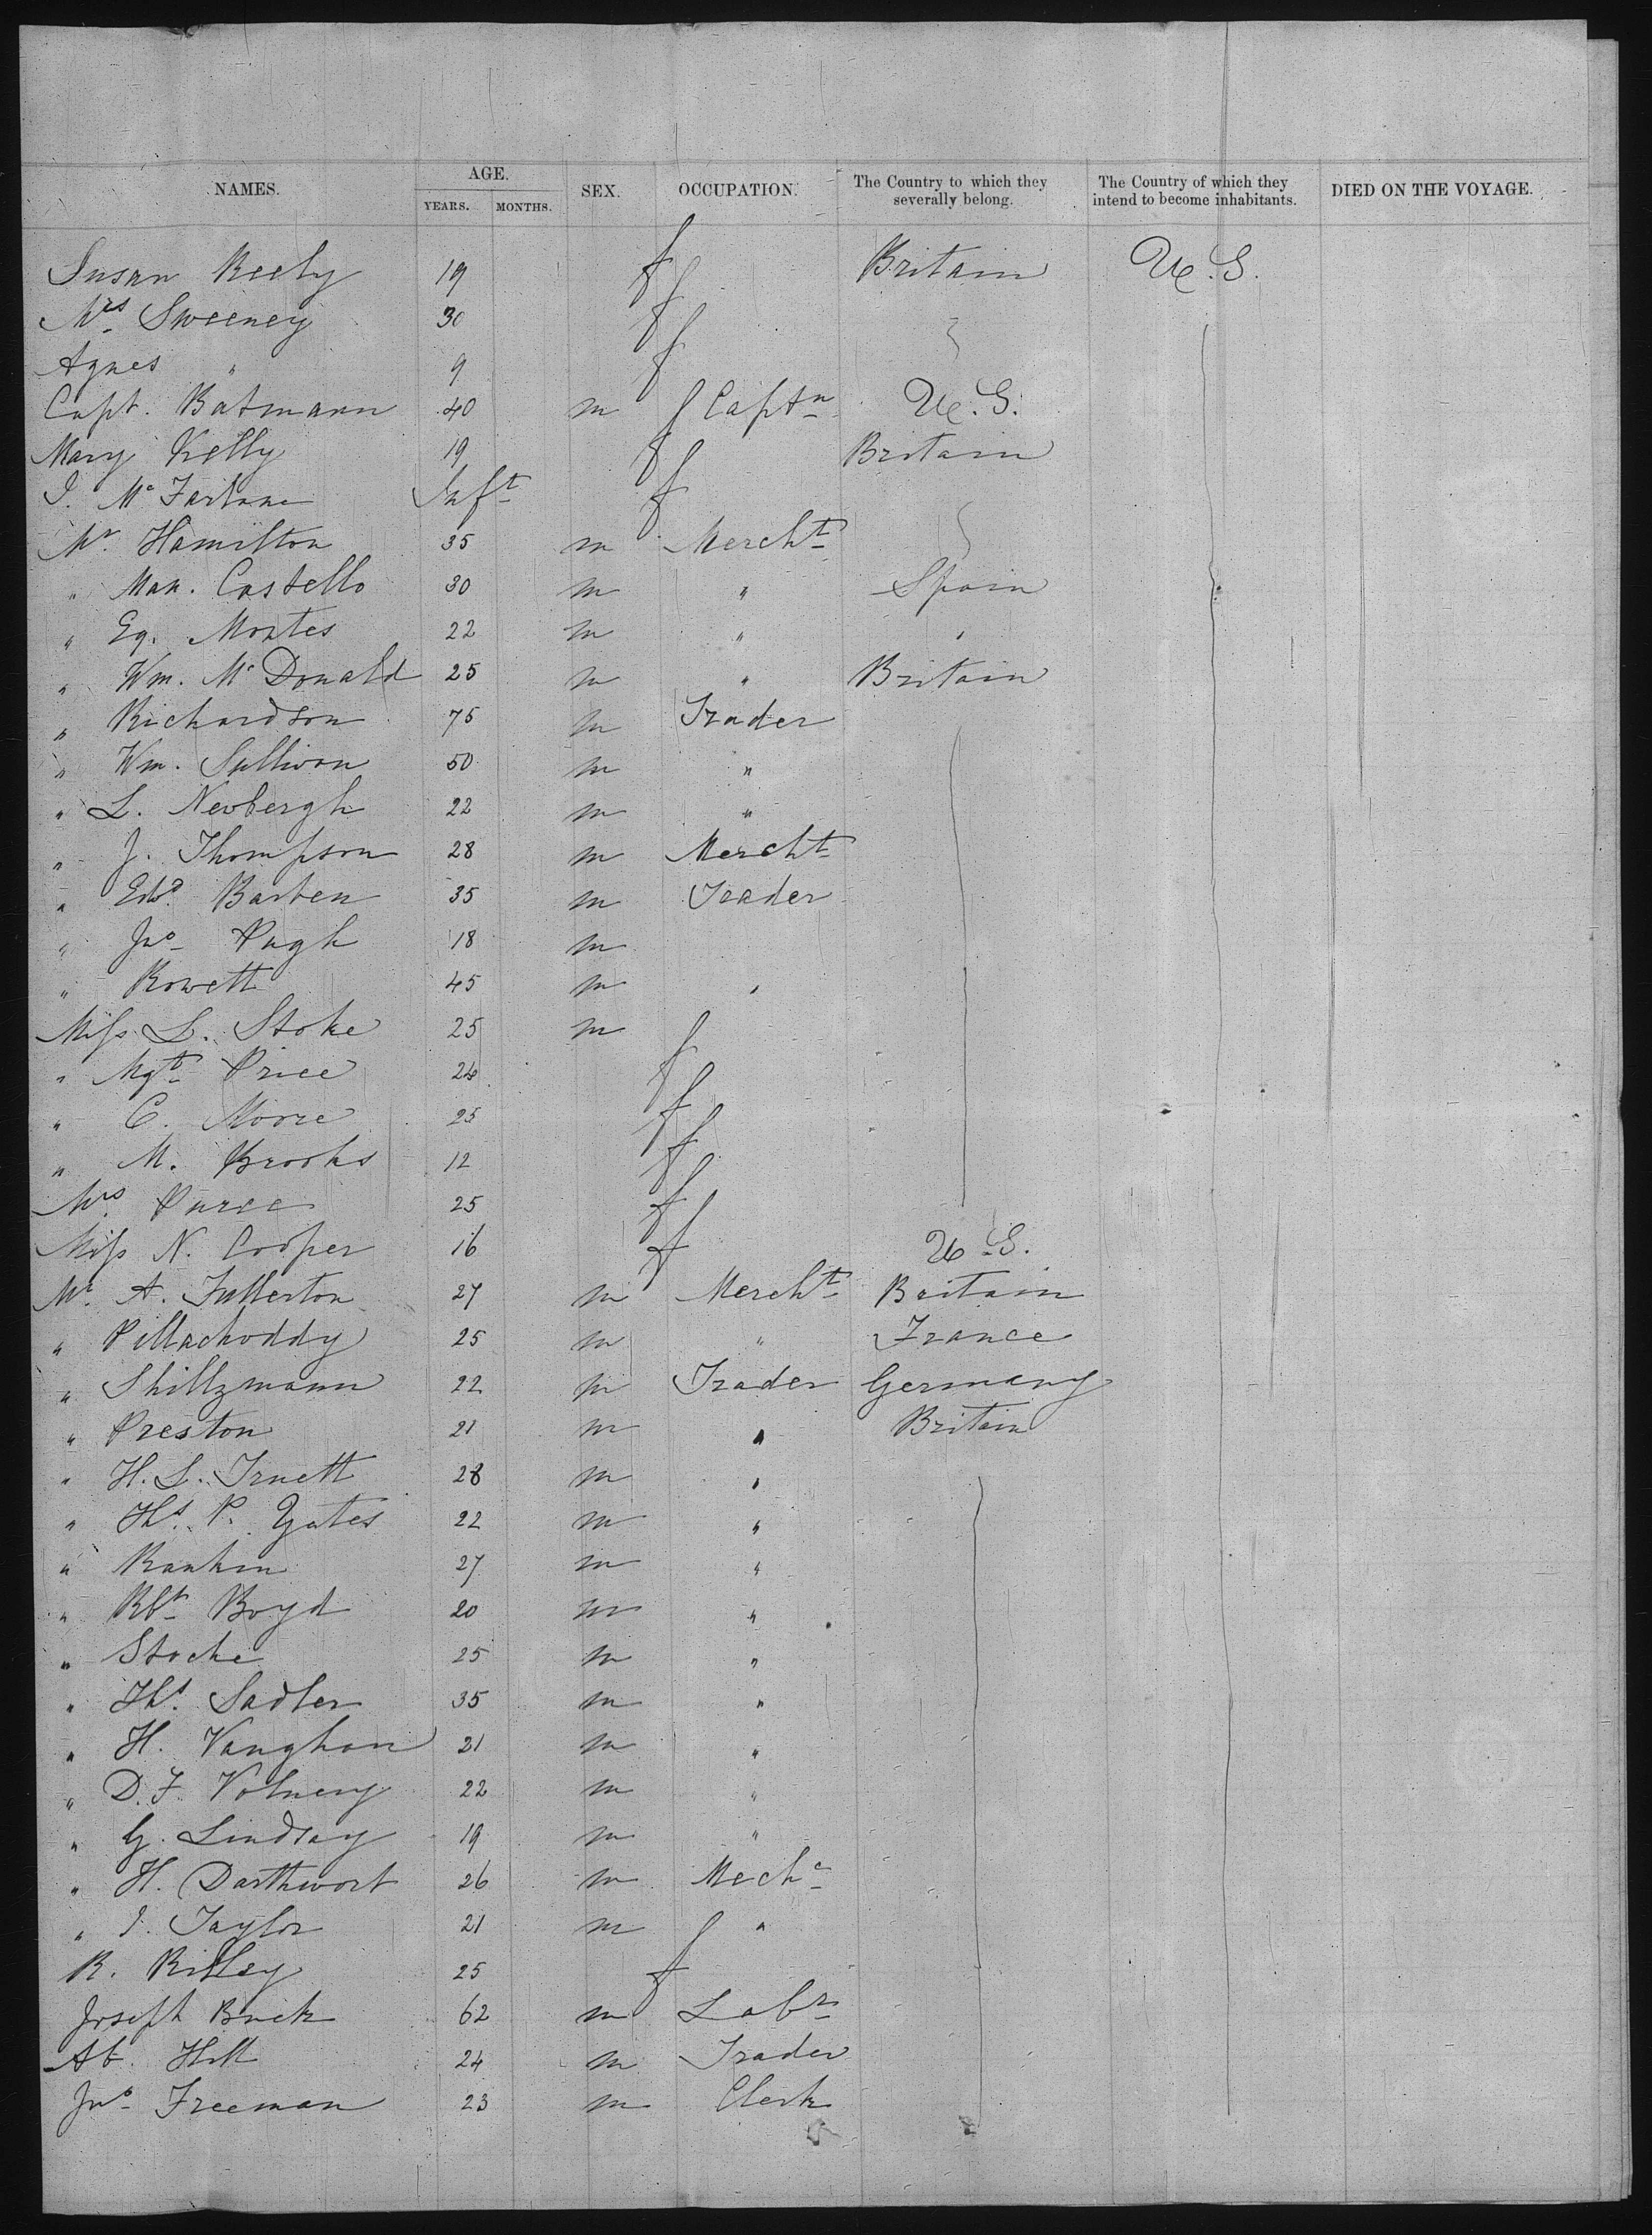 NAMES. AGE. SEX. OCCUPATION. The Country to which they severally belong. The Country of which they intend to become inhabitants. DIED ON THE VOYAGE.
YEARS. MONTHS.
Susan 19 f Britain U.S.
Mrs Sweeney 30 f
Agnes " 9 f
Capt. Batmann 40 m Captn U.S.
Mary Kelly 19 f Britain
J. McFarlane Inft f
Mr. Hamilton 35 m Mercht
" Man. Castello 30 m " Spain
" Eq. Montes 22 m " "
" Wm. McDonald 25 m " Britain
" Richardson 75 m Trader
" Wm. Sullivan 50 m "
" L. Newbergh 22 m "
" J. Thompson 28 m Mercht
" Edwd. Barten 35 m Trader
" Jno Pugh 18 m
" Rowett 45 m "
Miss L. Stoke 25 m
" Mgt Price 24 f
" C. Moore 25 f
" M. Brooks 12 f
Mrs 25 f
Miss N. Cooper 16 f U.S.
Mr. A. Fullerton 27 m Mercht Britain
" 25 m " France
" Shillzmann 22 m Trader Germany
" Preston 21 m " Britain
" H. L. Truett 28 m "
" Ths. P. Yates 22 m "
" Rankin 27 m "
" Rbt Boyd 20 m "
" Stocke 25 m "
" Ths. Sadler 35 m "
" H. Vaughan 21 m "
" D. F. Volney 22 m "
" G. Lindsay 19 m "
" H. Darthwort 26 m Mechc
" J. Taylor 21 m "
R. Rilley 25 f
Joseph Buck 62 m Labr
Ab. Hill 24 m Trader
Jno Freeman 23 m Clerk